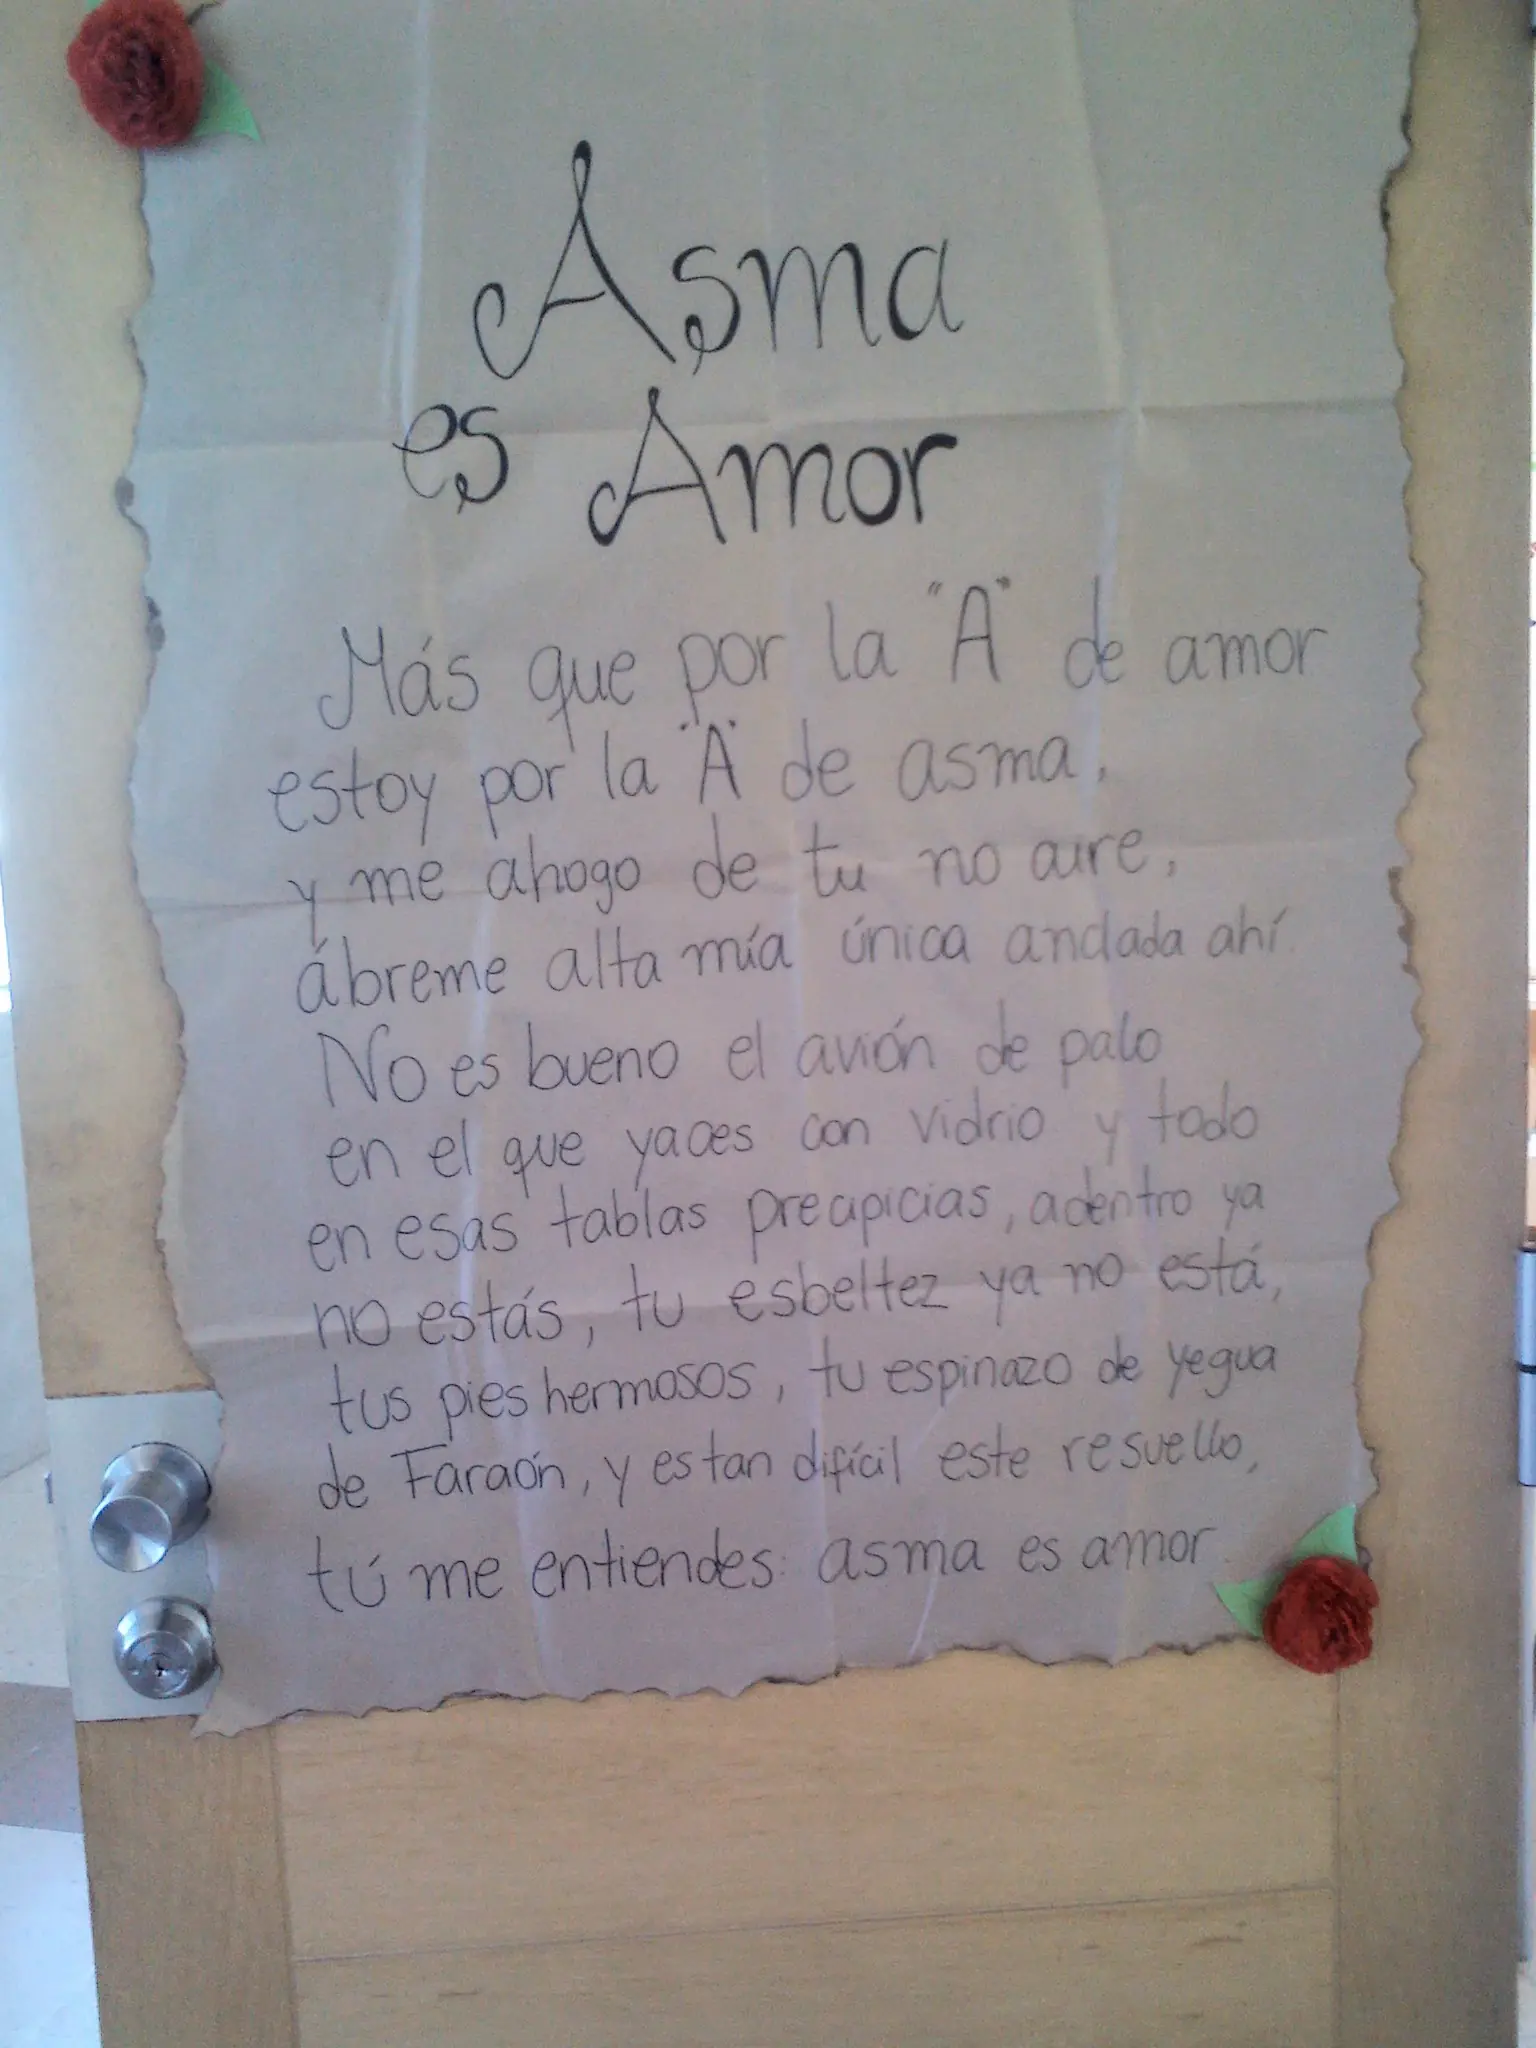 Asma
es Amor
Más que por la "A" de amor
estoy por la "A" de asma,
y me ahogo de tu no aire,
ábreme alta mía única andada ahí.
No es bueno el avión de palo
en el que yaces con vidrio y todo
en esas tablas precipicias, adentro ya
no estás, tu esbeltez ya no está,
tus pies hermosos, tu espinazo de yegua
de Faraón, y es tan difícil este resuello,
tú me entiendes: asma es amor.